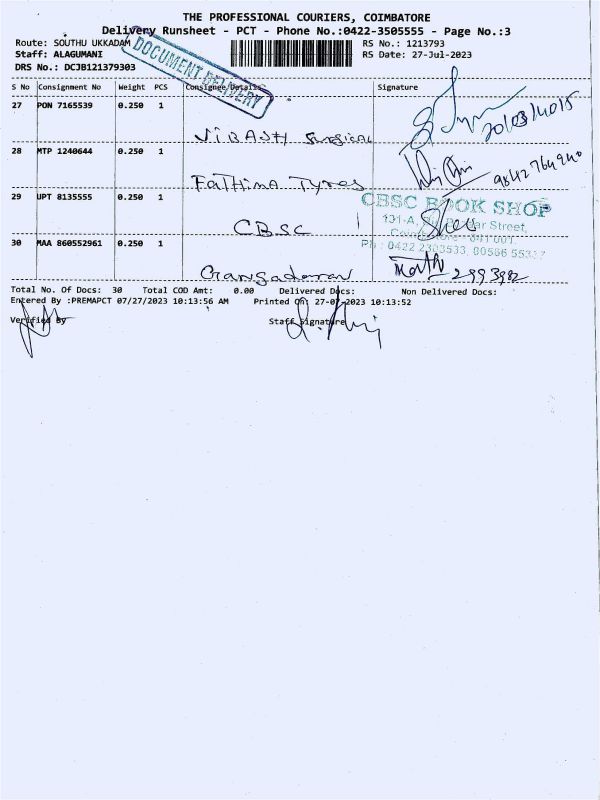 THE PROFESSIONAL COURIERS, COIMBATORE
Delivery Runsheet - PCT - Phone No.:0422-3505555 - Page No.:3
Route: SOUTHU UKKADAM
RS No.: 1213793
Staff: ALAGUMANI
RS Date: 27-Jul-2023
DRS No.: DCJB121379303
DOCUMENT DELIVERY
S No Consignment No Weight PCS Consignee Details Signature
27 PON 7165539 0.250 1
Surgical
28 MTP 1240644 0.250 1
9842764940
Fathima Tyres
29 UPT 8135555 0.250 1
CBSC BOOK SHOP
CBSC
131-A, Street,
Ph : 0422
30 MAA 860552961 0.250 1
Total No. Of Docs: 30 Total COD Amt: 0.00 Delivered Docs: Non Delivered Docs:
Entered By :PREMAPCT 07/27/2023 10:13:56 AM Printed On: 27-07-2023 10:13:52
Verified By Staff Signature